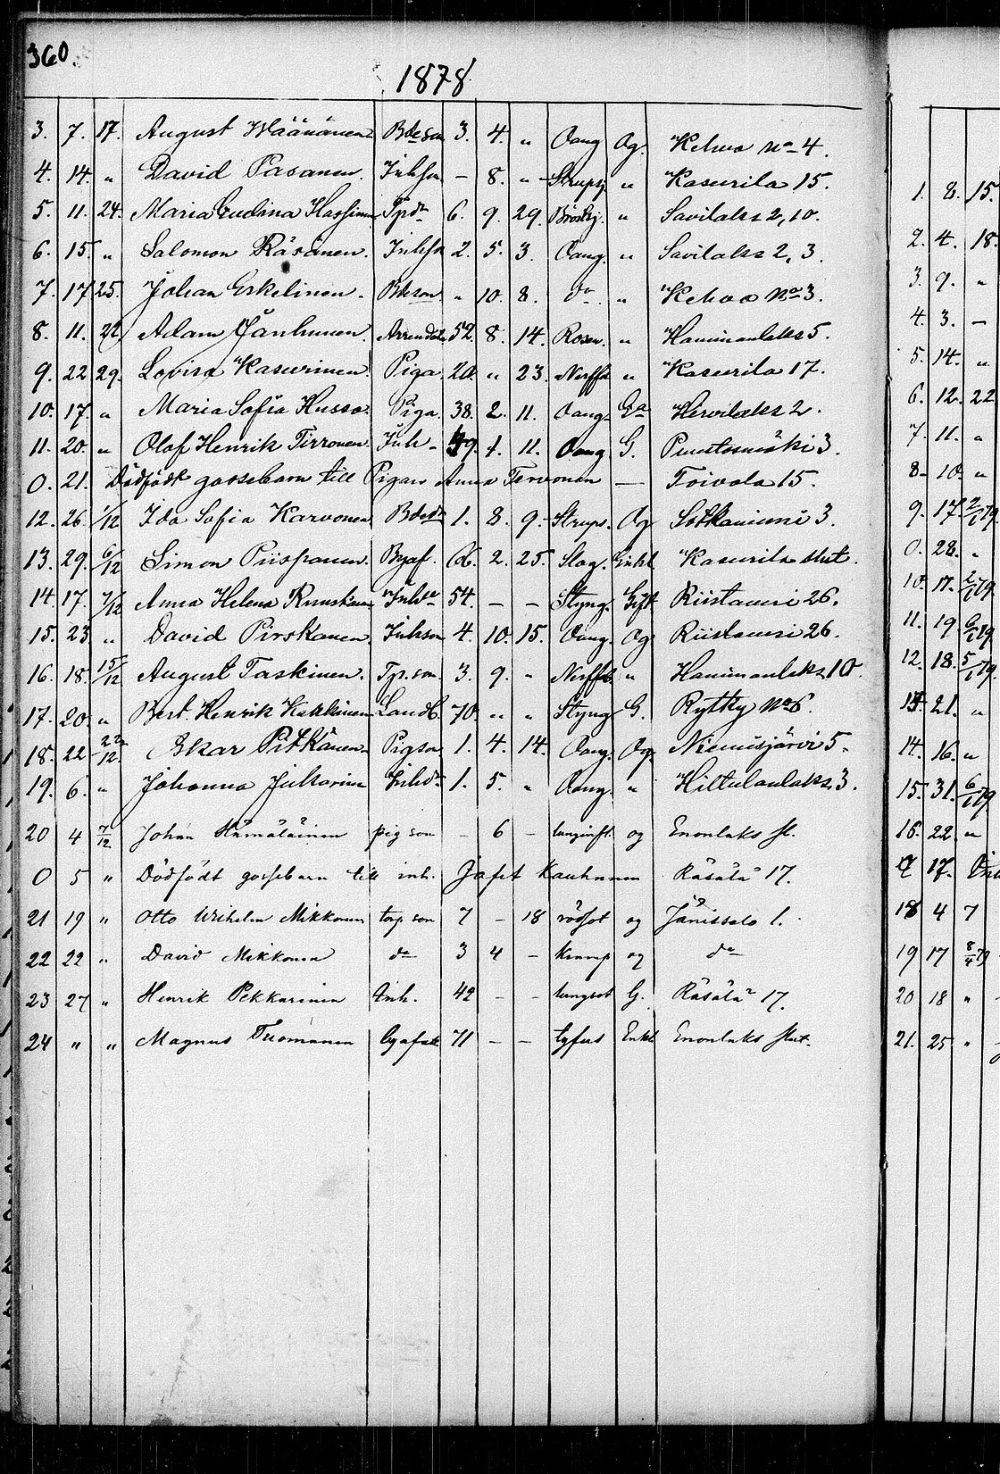 360.
1878
3. 7. 17. August Wäänänen Bdeson 3. 4. " Oang Og. Kehvo No 4.
4. 14. " David Pasanen. Inhson – 8. " Strupsj " Kasurila 15.
5. 11. 24. Maria Hassinen Tpdr 6. 9. 29. " Savilaks 2, 10.
6. 15. " Salomon Räsänen. Inhsn 2. 5. 3. Oang. " Savilaks 2, 3.
7. 17 25. Johan Eskelinen. Bdeson " 10. 8. do " Kehvo No 3.
8. 11. 22 Adam Jänhunen 52. 8. 14. Rosen. " Hamimanlaks 5.
9. 22 29. Lovisa Kasurinen. Piga. 20. " 23. Nerffb " Kasurila 17.
10. 17. " Maria Sofia Husso. Piga. 38. 2. 11. Oang. Ga Hirvilaks 2.
11. 20. " Olof Henrik Tirronen. Inh– 49. 1. 11. Oang G. Puutosmäki 3.
0. 21. Dödfödt gossebarn till Pigan Anna Tervonen — Toivala 15.
12. 26. 1/12 Ida Sofia Karvonen Bdedr 1. 8. 9. Strups. Og Sotkaniemi 3.
13. 29. 6/12 Simon Piispanen. Byaf. 66. 2. 25. Slag. Enkl Kasurila slut.
14. 17. 7/12 Anna Helena Inhda 54. – – Styng. Gift Riistavesi 26.
15. 23 " David Pirskanen. Inhson 4. 10. 15. Oang. Og Riistavesi 26.
16. 18. 15/12 August Taskinen. Tp. son 3. 9. " Nerffb. " Hamimanlaks 10.
17. 20. " Bert. Henrik Kakkinen Landb. 70. " " Styng G. Rytky No 6.
18. 22 22/12. Oskar Pitkänen. Pigson 1. 4. 14. Oang. Og. Niemisjärvi 5.
19. 6. " Johanna Julkunen Inhdr 1. 5. " Oang. " Hiltulanlaks. 3.
20 4 7/12 Johan Hämäläinen pigson – 6 – lunginfl. og Enonlaks sl.
0 5 " Dödfödt gossebarn till inh. Jafet Kauhanen Räsälä 17.
21 19 " Otto Wilhelm Mikkonen torpson 7 – 18 rödsot og Jänissalo 1.
22 22 " David Mikkonen do 3 4 – kramp og do
23 27 " Henrik Pekkarinen Inh. 42 – – lungsot G. Räsälä 17.
24 " " Magnus Tuomanen byafat 71 – – tyfus Enkl Enonlaks slut.
1. 8. 15.
2. 4. 18.
3. 9. "
4. 3. –
5. 14. "
6. 12. 22
7. 11. "
8– 10. "
9. 17. 2/1 79
0. 28. "
10. 17. 2/1 79.
11. 19 6/1 79
12. 18. 5/1 79.
13. 21. "
14. 16. "
15. 31. 6/1 79
16. 22. "
17.
18 4 7
19 17 8/4 79
20 18 "
21. 25 "